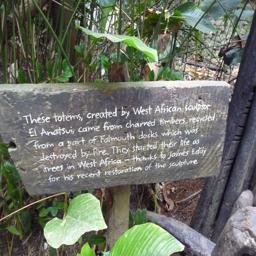 These totems, created by West African sculptor
El Anatsui, came from charred timbers, recycled
from a part of Falmouth docks which was
destroyed by fire. They started their life as
trees in West Africa - thanks to joiner Eddy
for his recent restoration of the sculpture